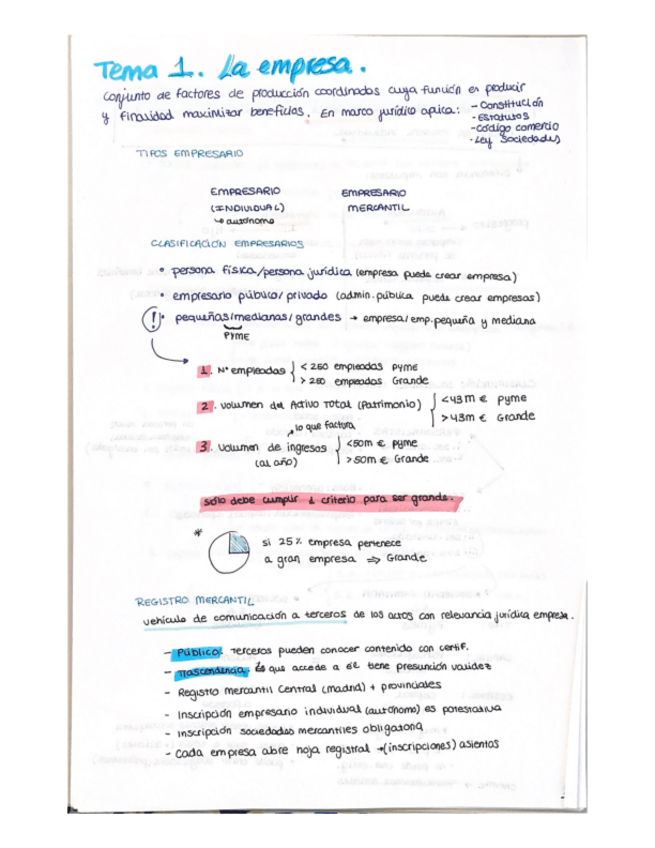 Tema 1. La empresa.
Conjunto de factores de producción coordinados cuya función es producir
y finalidad maximizar beneficios. En marco jurídico aplica: - Constitución
- Estatutos
- Código comercio
- Ley Sociedades
TIPOS EMPRESARIO
EMPRESARIO EMPRESARIO
(INDIVIDUAL) MERCANTIL
↳ autónomo
CLASIFICACIÓN EMPRESARIOS
• persona física/persona jurídica (empresa puede crear empresa)
• empresario público/privado (admin. pública puede crear empresas)
(!) • pequeñas/medianas/grandes → empresa/emp. pequeña y mediana
PYME
1. Nº empleados { < 250 empleados PYME
> 250 empleados Grande
2. Volumen del Activo Total (Patrimonio) { <43m € pyme
>43m € Grande
lo que factura
3. Volumen de ingresos { <50m € pyme
(al año) >50m € Grande
Sólo debe cumplir 1 criterio para ser grande.
* si 25% empresa pertenece
a gran empresa ⇒ Grande
REGISTRO MERCANTIL
vehículo de comunicación a terceros de los actos con relevancia jurídica empresa.
- Público: Terceros pueden conocer contenido con certif.
- Trascendencia: lo que accede a él tiene presunción validez
- Registro Mercantil Central (madrid) + provinciales
- Inscripción empresario individual (autónomo) es potestativa
- Inscripción sociedades mercantiles obligatoria
- Cada empresa abre hoja registral → (inscripciones) asientos